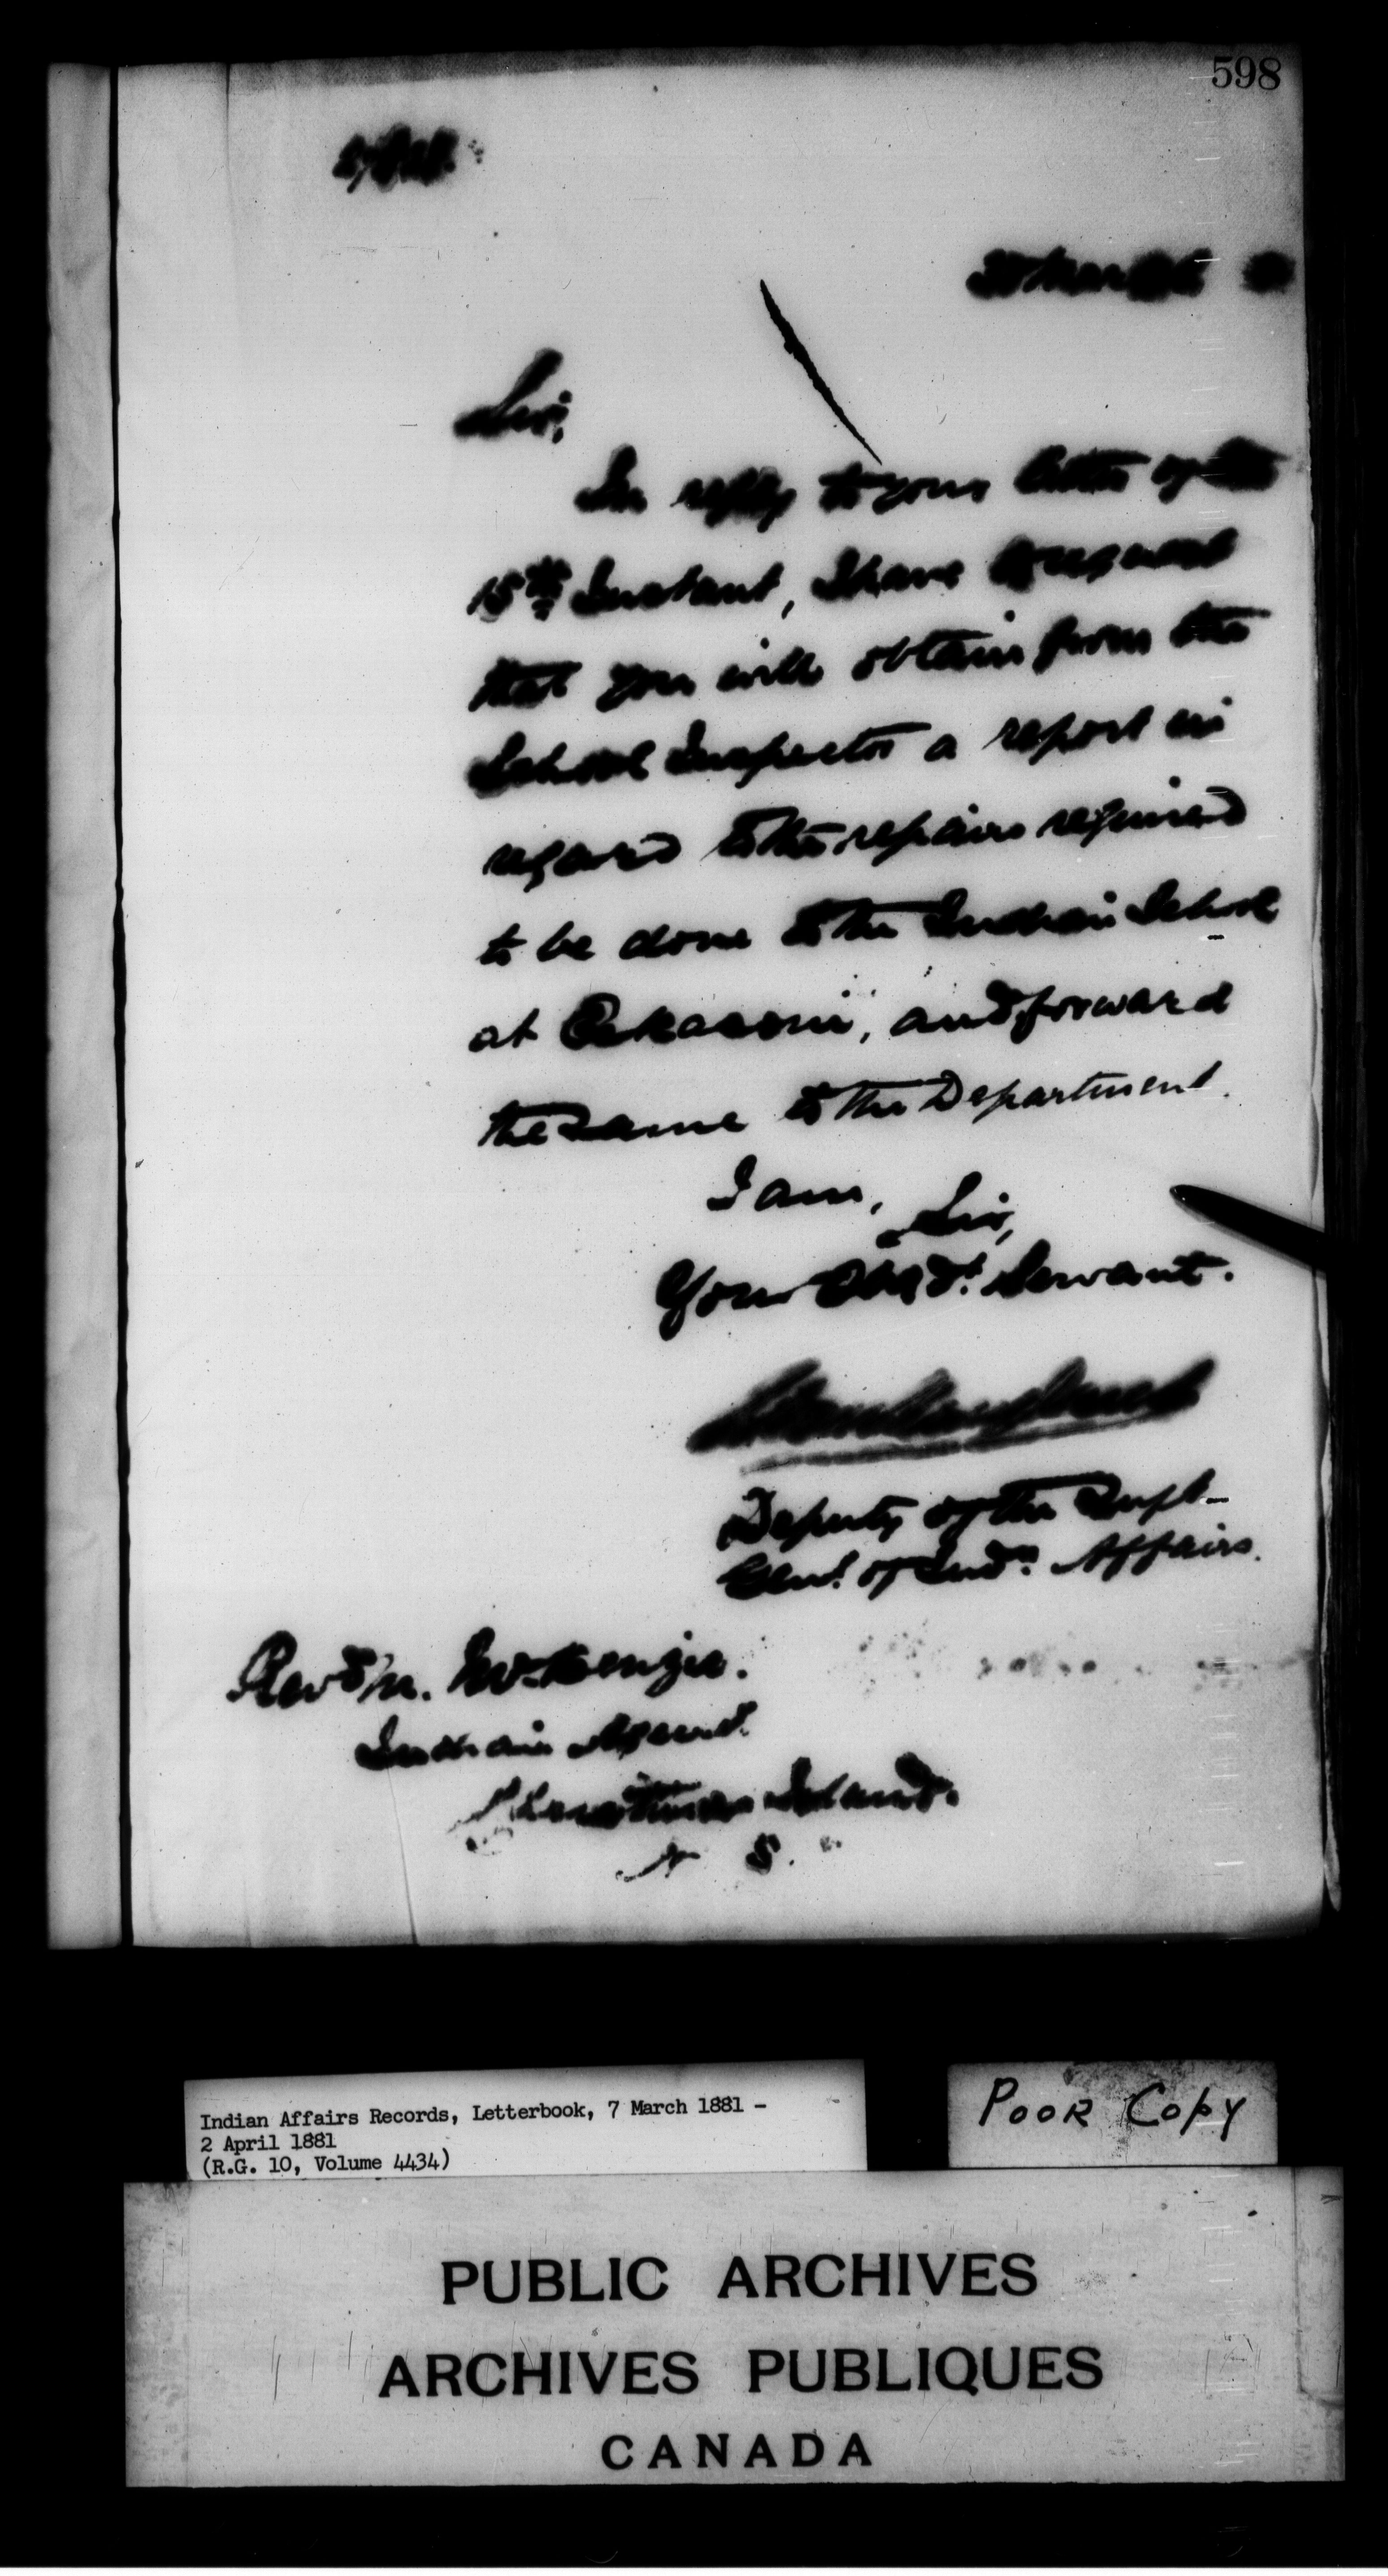 598
30 March 81
Sir,
In reply to your letter of the
15th Instant, I have to request
that you will obtain from the
School Inspector a report in
regard to the repairs required
to be done to the Indian School
at Eskasoni, and forward
the same to the Department.
I am, Sir,
Your Obed't. Servant.
Deputy of the Supt
Genl. of Indn. Affairs.
Revd M. McKenzie.
Indian Agent.
Christmas Island.
N S.
Indian Affairs Records, Letterbook, 7 March 1881 -
2 April 1881
(R.G. 10, Volume 4434)
POOR COPY
PUBLIC ARCHIVES
ARCHIVES PUBLIQUES
CANADA